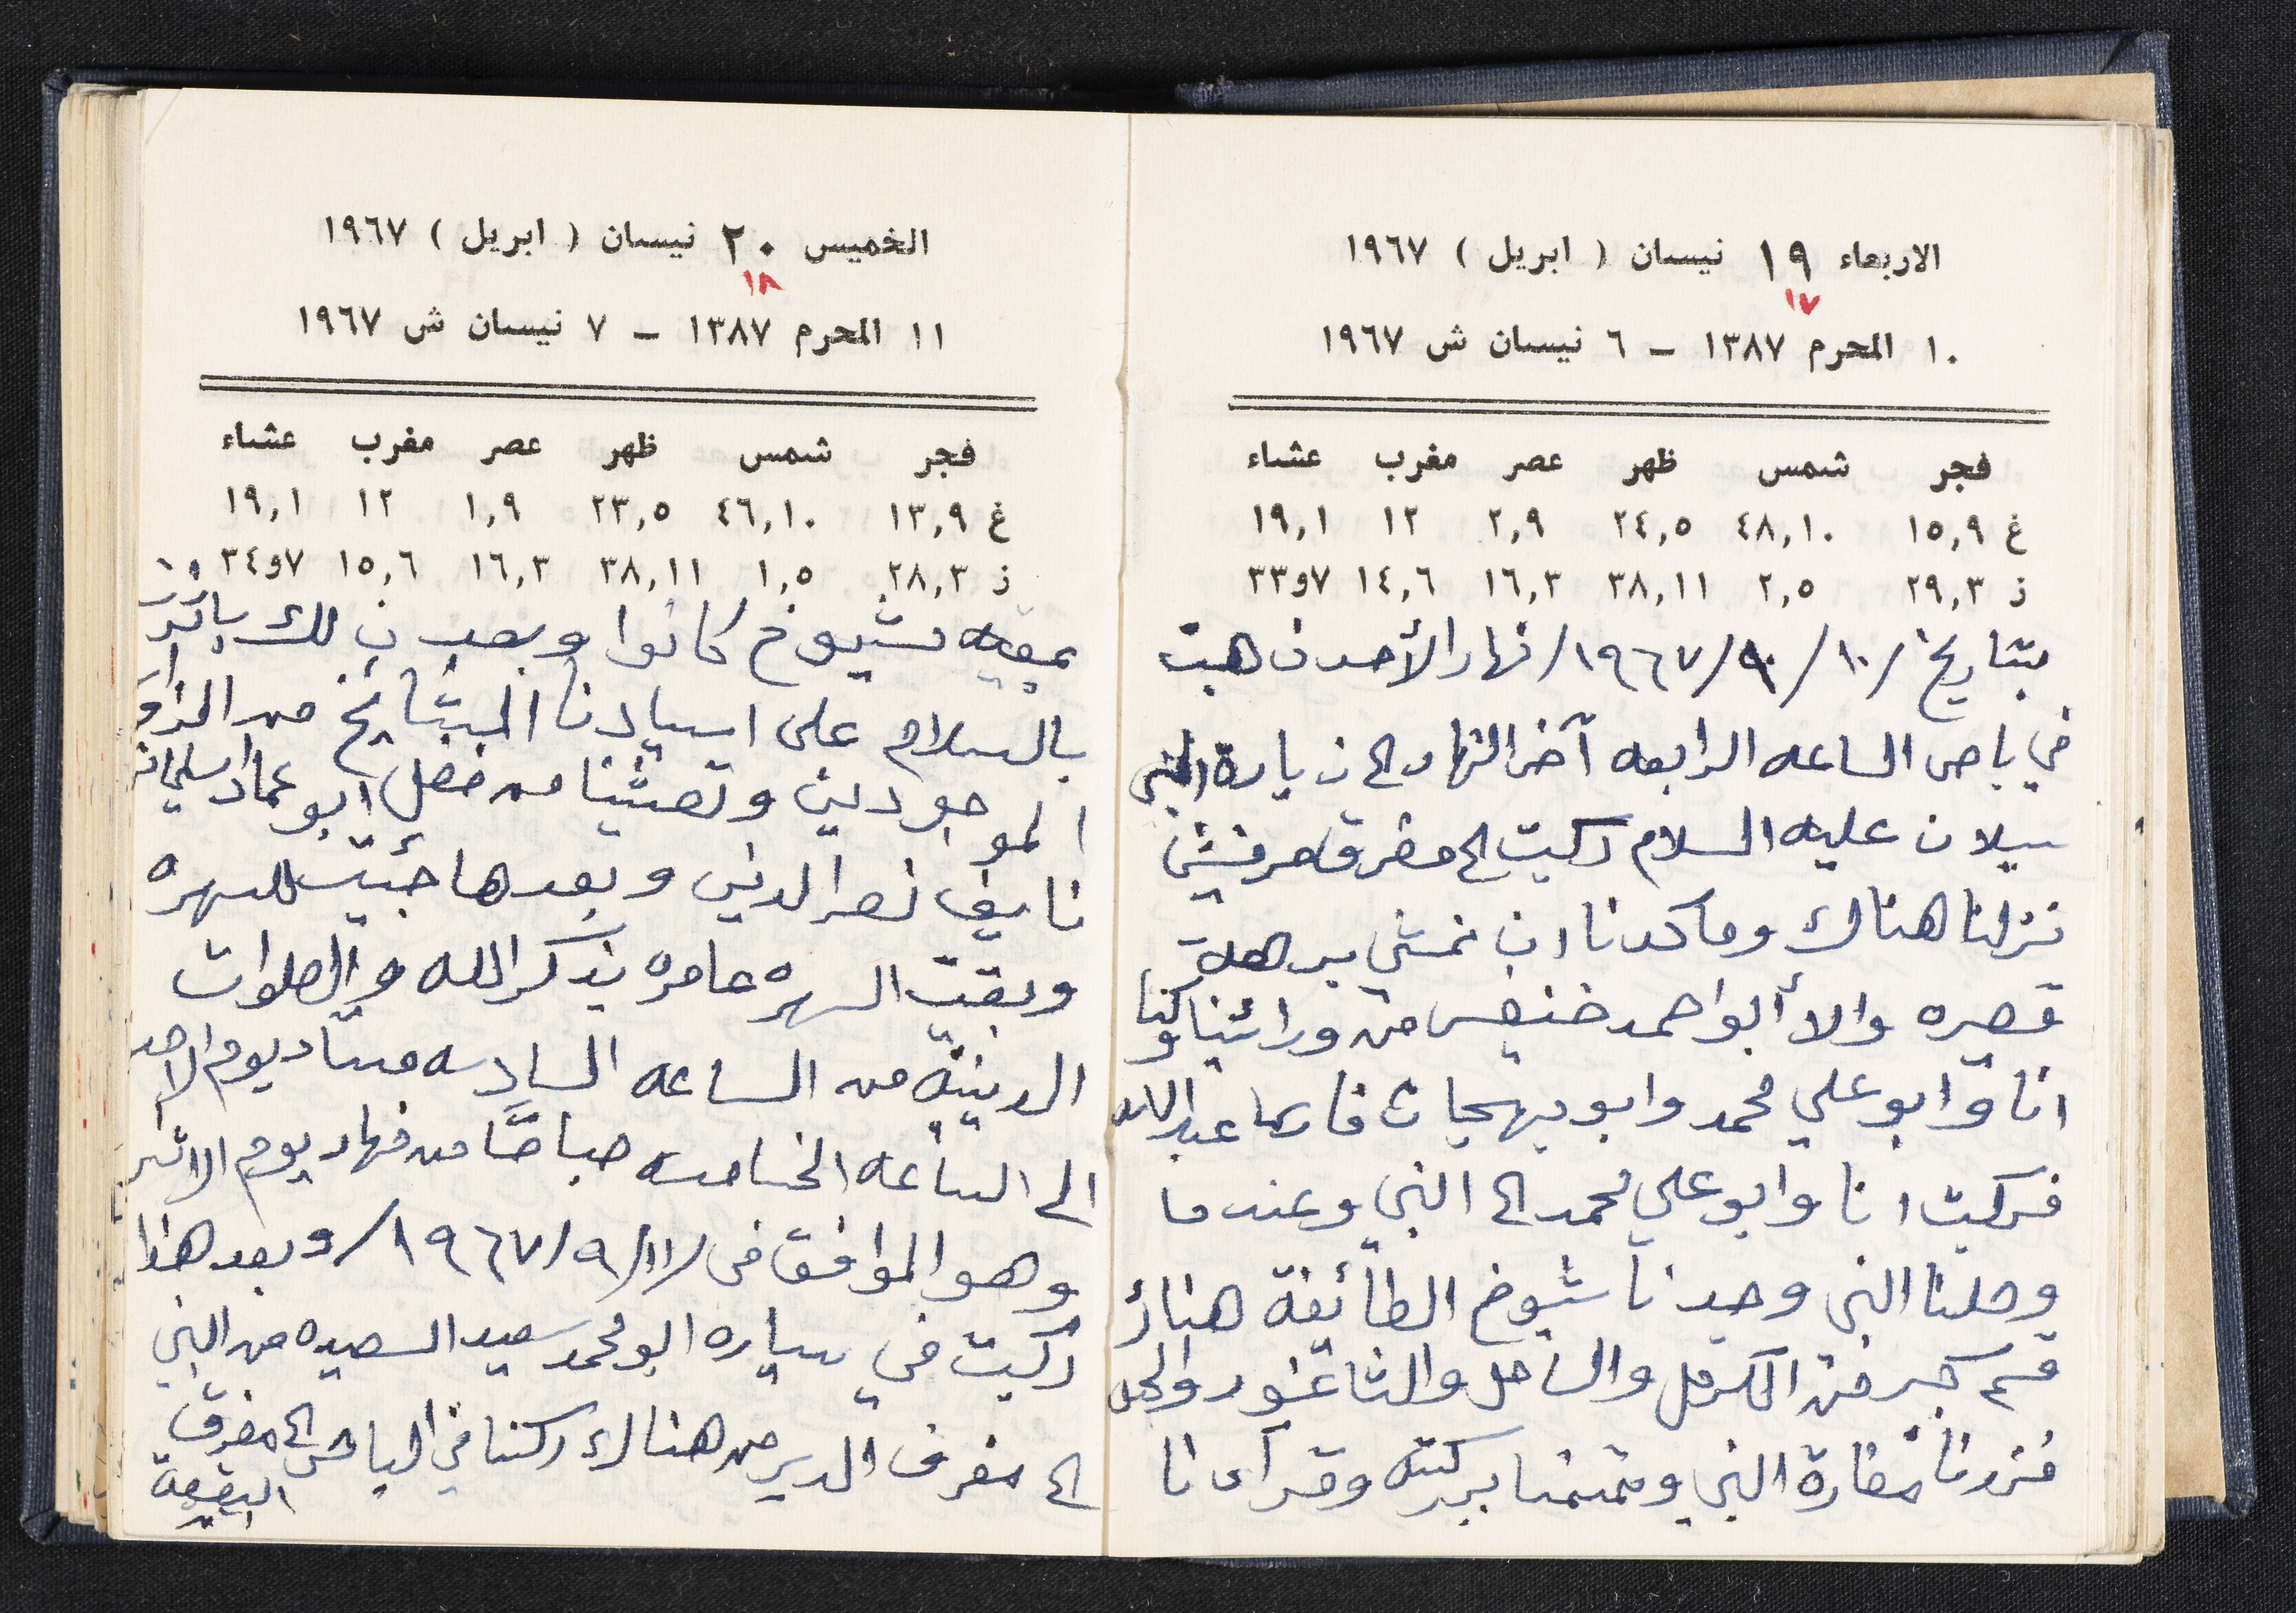 الاربعاء ١٩ نيسان ( ابريل ) ١٩٦٧
١٧
١٠ المحرم ١٣٨٧ – ٦ نيسان ش ١٩٦٧
فجر شمس ظهر عصر مغرب عشاء
غ ١٥,٩ ٤٨,١٠ ٢٤,٥ ٢,٩ ١٢ ١٩,١
ز ٢٩,٣ ٢,٥ ٣٨,١١ ١٦,٣ ١٤,٦ ٧و٣٣
بتاريخ /١٠/٩/١٩٦٧/ نهار الأحد ذهبت
في باص الساعه الرابعه آخر النهار الى زيارة النبي
سبلان عليه السلام ركبت الى مفرق حرفيش
نزلنا هناك وما كدنا ان نمشي برهة
قصيره والا أبو احمد خنيفس من ورائنا وكنا
انا وابو علي محمد وابو بهجات فارس عبدالله
فركبت انا وابو علي محمد الى النبي وعندما
وصلنا النبي وجدنا شيوخ الطائفة هناك
قسم كبير من الكرمل والساحل والشاغور والجبل
فزرنا مغارة النبي وقمنا ببركته وقرآنا
الخميس ٢٠ نيسان ( ابريل ) ١٩٦٧
١٨
١١ المحرم ١٣٨٧ – ٧ نيسان ش ١٩٦٧
فجر شمس ظهر عصر مغرب عشاء
غ ١٣,٩ ٤٦,١٠ ٢٣,٥ ١,٩ ١٢ ١٩,١
ز ٢٨,٣ ١,٥ ٣٨,١١ ١٦,٣ ١٥,٦ ٧و٣٤
بمعيه شيوخ كانوا وبعد ذلك
بالسلام على اسيادنا المشايخ من
الموجودين وتعشينا من فضل ابو عماد سليمان
نايف نصرالدين وبعدها جئت للسهره
وبقيت السهره عامره بذكر الله والصلوات
الدينيّه من الساعه السادسه مساء يوم الاحد
الى الساعه الخامسه صباحًا من نهار يوم الاثنين
وهو الموافق في /١١/٩/١٩٦٧/ وبعد هذا
ركبت في سياره ابو محمد سعيد السعيده من النبي
الى مفرق الدير من هناك ركبنا في الباص الى مفرق
البقيعة